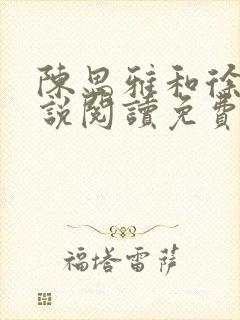 陳思雅和徐
說閱讀免費
福塔雷萨